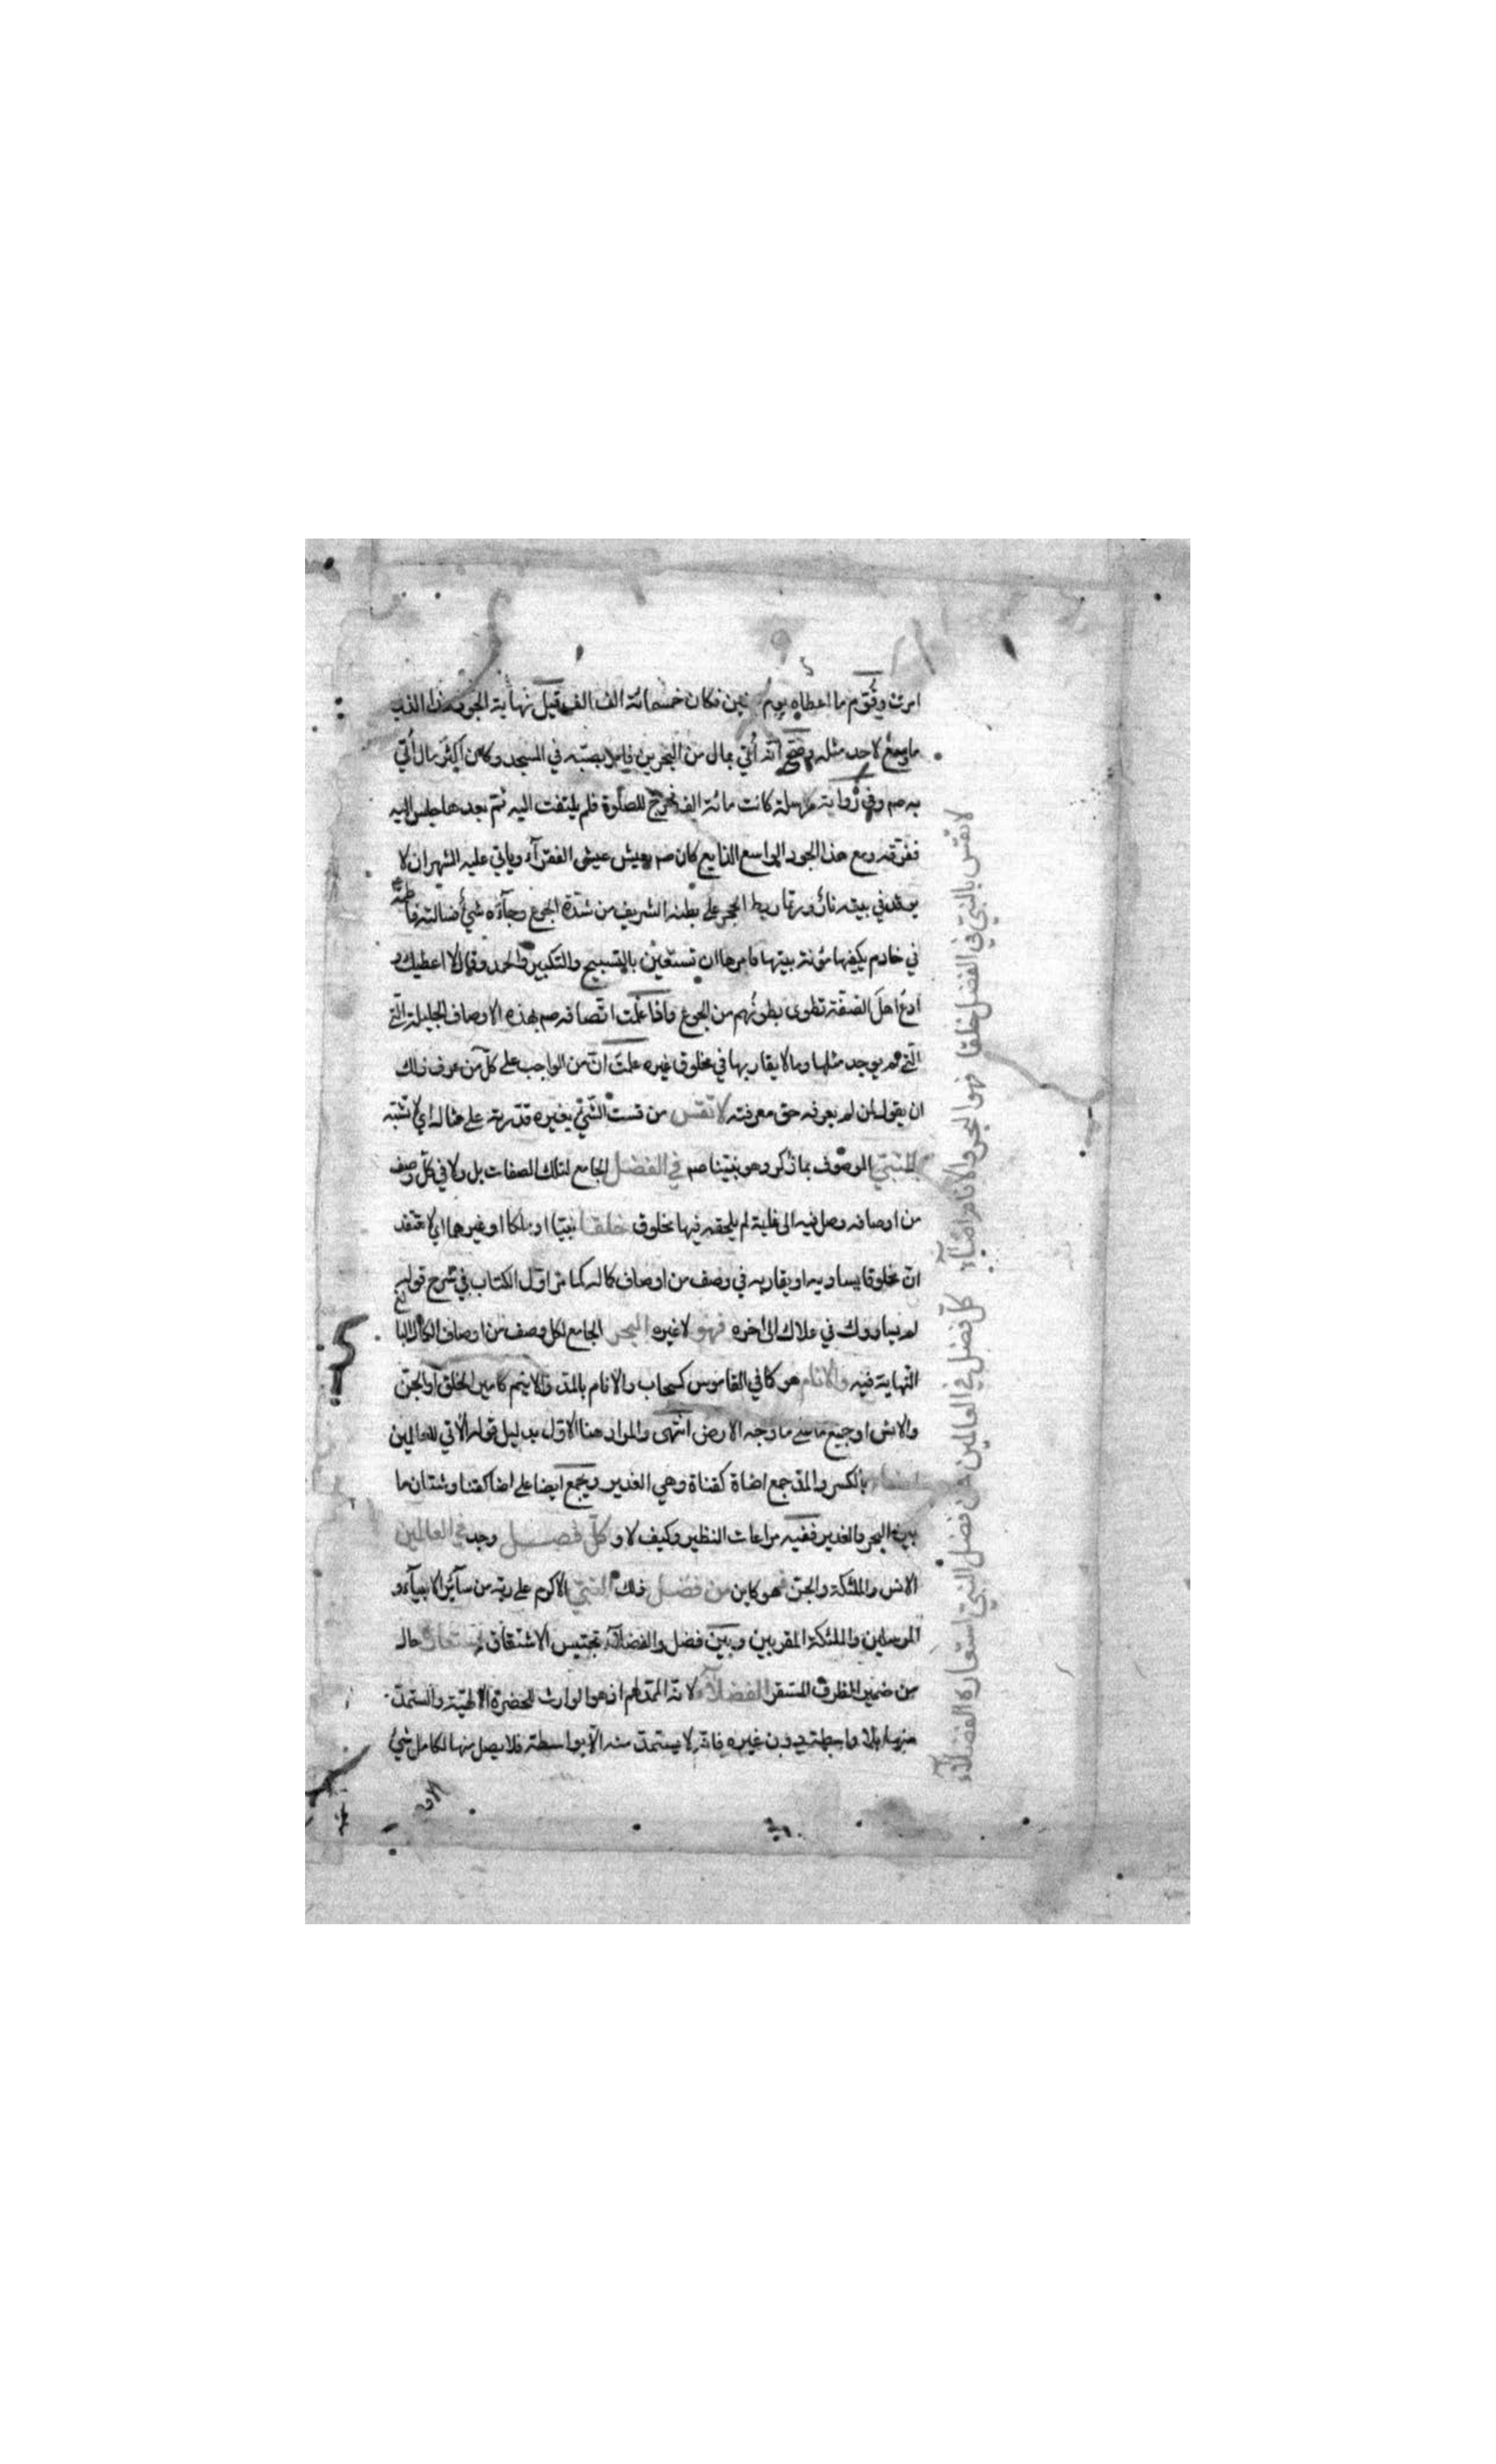 امرت وقوّم ما اعطاه يوم حنين فكان خمسمائة الف الف قيل نهاية الجود هذا الذي
ما سمع لاحد مثله وصح انّه أتي بمال من البحرين فامر بصبّه في المسجد وكان اكثر مال أتي
به صم وفي رواية مرسلة كانت مائة الف فخرج للصلوة فلم يلتفت اليه ثم بعدها جلس اليه
ففرّقه ومع هذا الجود الواسع الذايع كان صم يعيش عيش الفقرآء وياتي عليه الشهران لا
يوقد في بيته نار وربّما ربط الحجر على بطنه الشريف من شدّة الجوع وجآءه شيء فسالته فاطمة
في خادم يكفيها مؤنة بيتها فامرها ان تستعين بالتسبيح والتكبير والحمد وقال لا اعطيك و
ادع اهل الصفّة تطوى بطونهم من الجوع واذا علمت اتّصافه صم بهذه الاوصاف الجليلة الّتي
الّتي لم يوجد مثلها وما لا يقاربها في مخلوق غيره علمت انّ من الواجب على كلّ من عرف ذلك
ان يقول لمن لم يعرفه حق معرفته لا تقس من قست الشيء بغيره قدّرته على مثاله اي لا تشبّه
بالنبيّ الموصوف بما ذكر وهو نبيّنا صم في الفضل الجامع لتلك الصفات بل ولا في كلّ وصف
من اوصافه وصل فيه الى غاية لم يلحقه فيها مخلوق خلقا نبيّا او ملكا او غيرهما اي لا تعتقد
انّ مخلوقا يساويه او يقاربه في وصف من اوصاف كماله كما مرّ اوّل الكتاب في شرح قوله
لم يساووك في علاك الى آخره فهو لا غيره البحر الجامع لكل وصف من اوصاف الكمال البالغ
النهاية فيه والانام هو كما في القاموس كسحاب والآنام بالمدّ والانيم كامير الخلق او الجنّ
والانس او جميع ما على وجه الارض انتهى والمراد هنا الاوّل بدليل قوله الآتي للعالمين
اضاء بالكسر والمدّ جمع اضاة كقناة وهي الغدير ويجمع ايضا على اضا كقنا وشتّان ما
بين البحر والغدير ففيه مراعات النظير وكيف لا و كلّ فضل وجد في العالمين
الانس والملئكة والجنّ فهو كاين من فضل ذلك النبيّ الاكرم على ربّه من سآئر الانبيآء و
المرسلين والملئكة المقربين وبين فضل والفضلآء تجنيس الاشتقاق استعاره حال
من ضمير الظرف المستقر الفضلآء لانّه الممدّ لهم اذ هو الوارث للحضرة الالهيّة والمستمدّ
منها بلا واسطة دون غيره فانّه لا يستمدّ منه الّا بواسطته فلا يصل منها لكامل شيء
الّا و
لا تقس بالنبيّ في الفضل خلقا فهو البحر والانام اضآء كلّ فضل في العالمين من فضل النبيّ استعاره الفضلآء